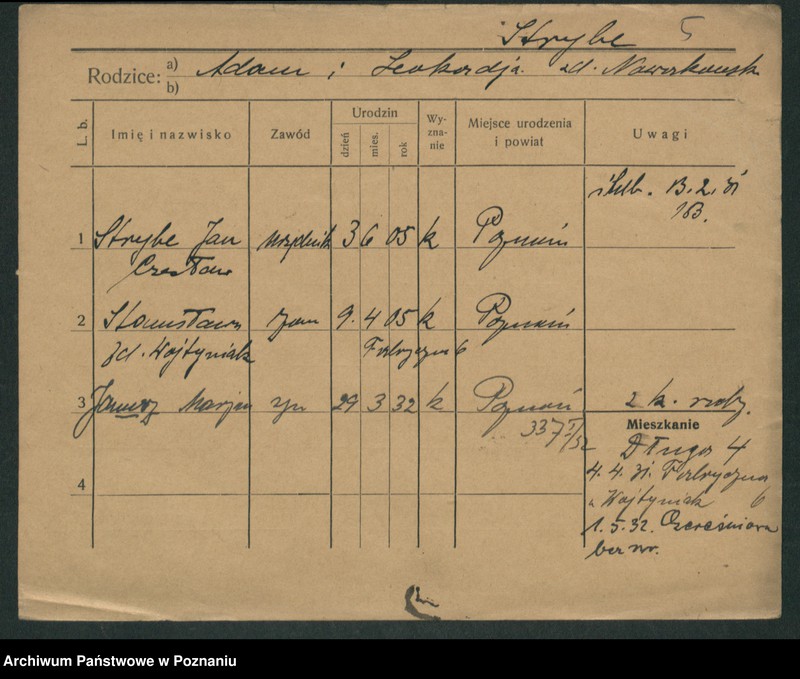 Strybe 5
Rodzice: a) b) Adam i Leokordja zd. Nowakowsk
L. b. Imię i nazwisko Zawód Urodzin dzień mies. rok Wyznanie Miejsce urodzenia i powiat Uwagi
ślub. 13.2.31
1 Strybe Jan urzędnik 3 6 05 k Poznań
Czesław
2 Stanisława żona 9. 4 05 k Poznań
zd. Wojtyniak Fabryczna 6
3 Janusz Marjan syn 29 3 32 k Poznań 2 k. rodz.
337
Mieszkanie
Długa 4
4 4. 4. 31. Fabryczna 6
u Wojtyniak
1. 5. 32. Czereśniowa
bez nr.
Archiwum Państwowe w Poznaniu